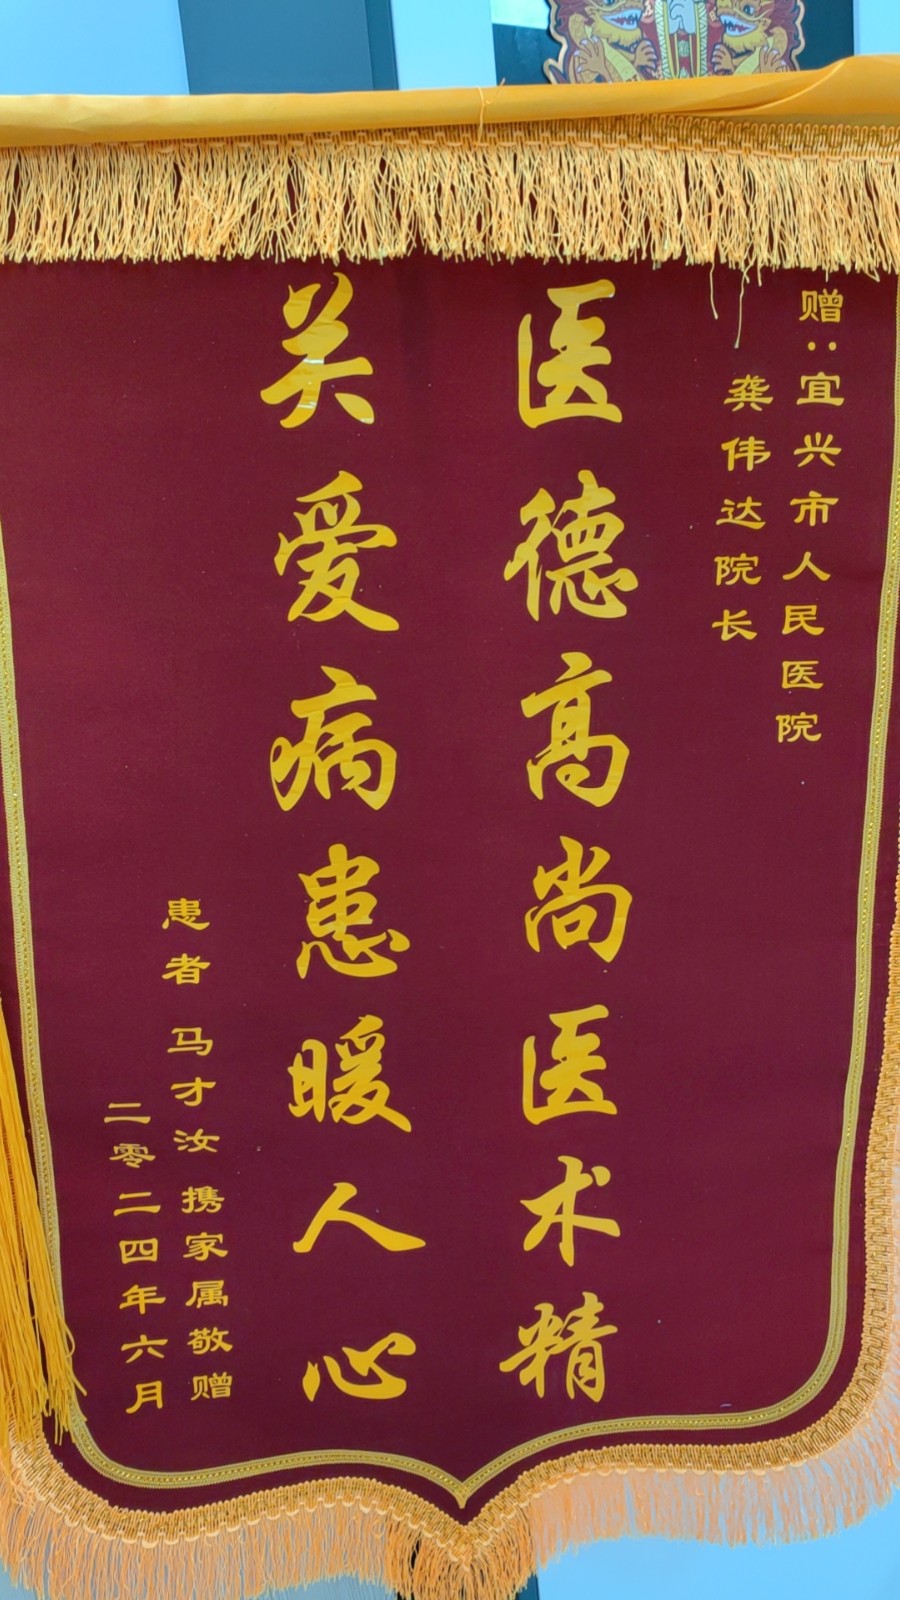 赠：宜兴市人民医院
龚伟达院长
医德高尚医术精
关爱病患暖人心
患者 马才汝 携家属敬赠
二零二四年六月